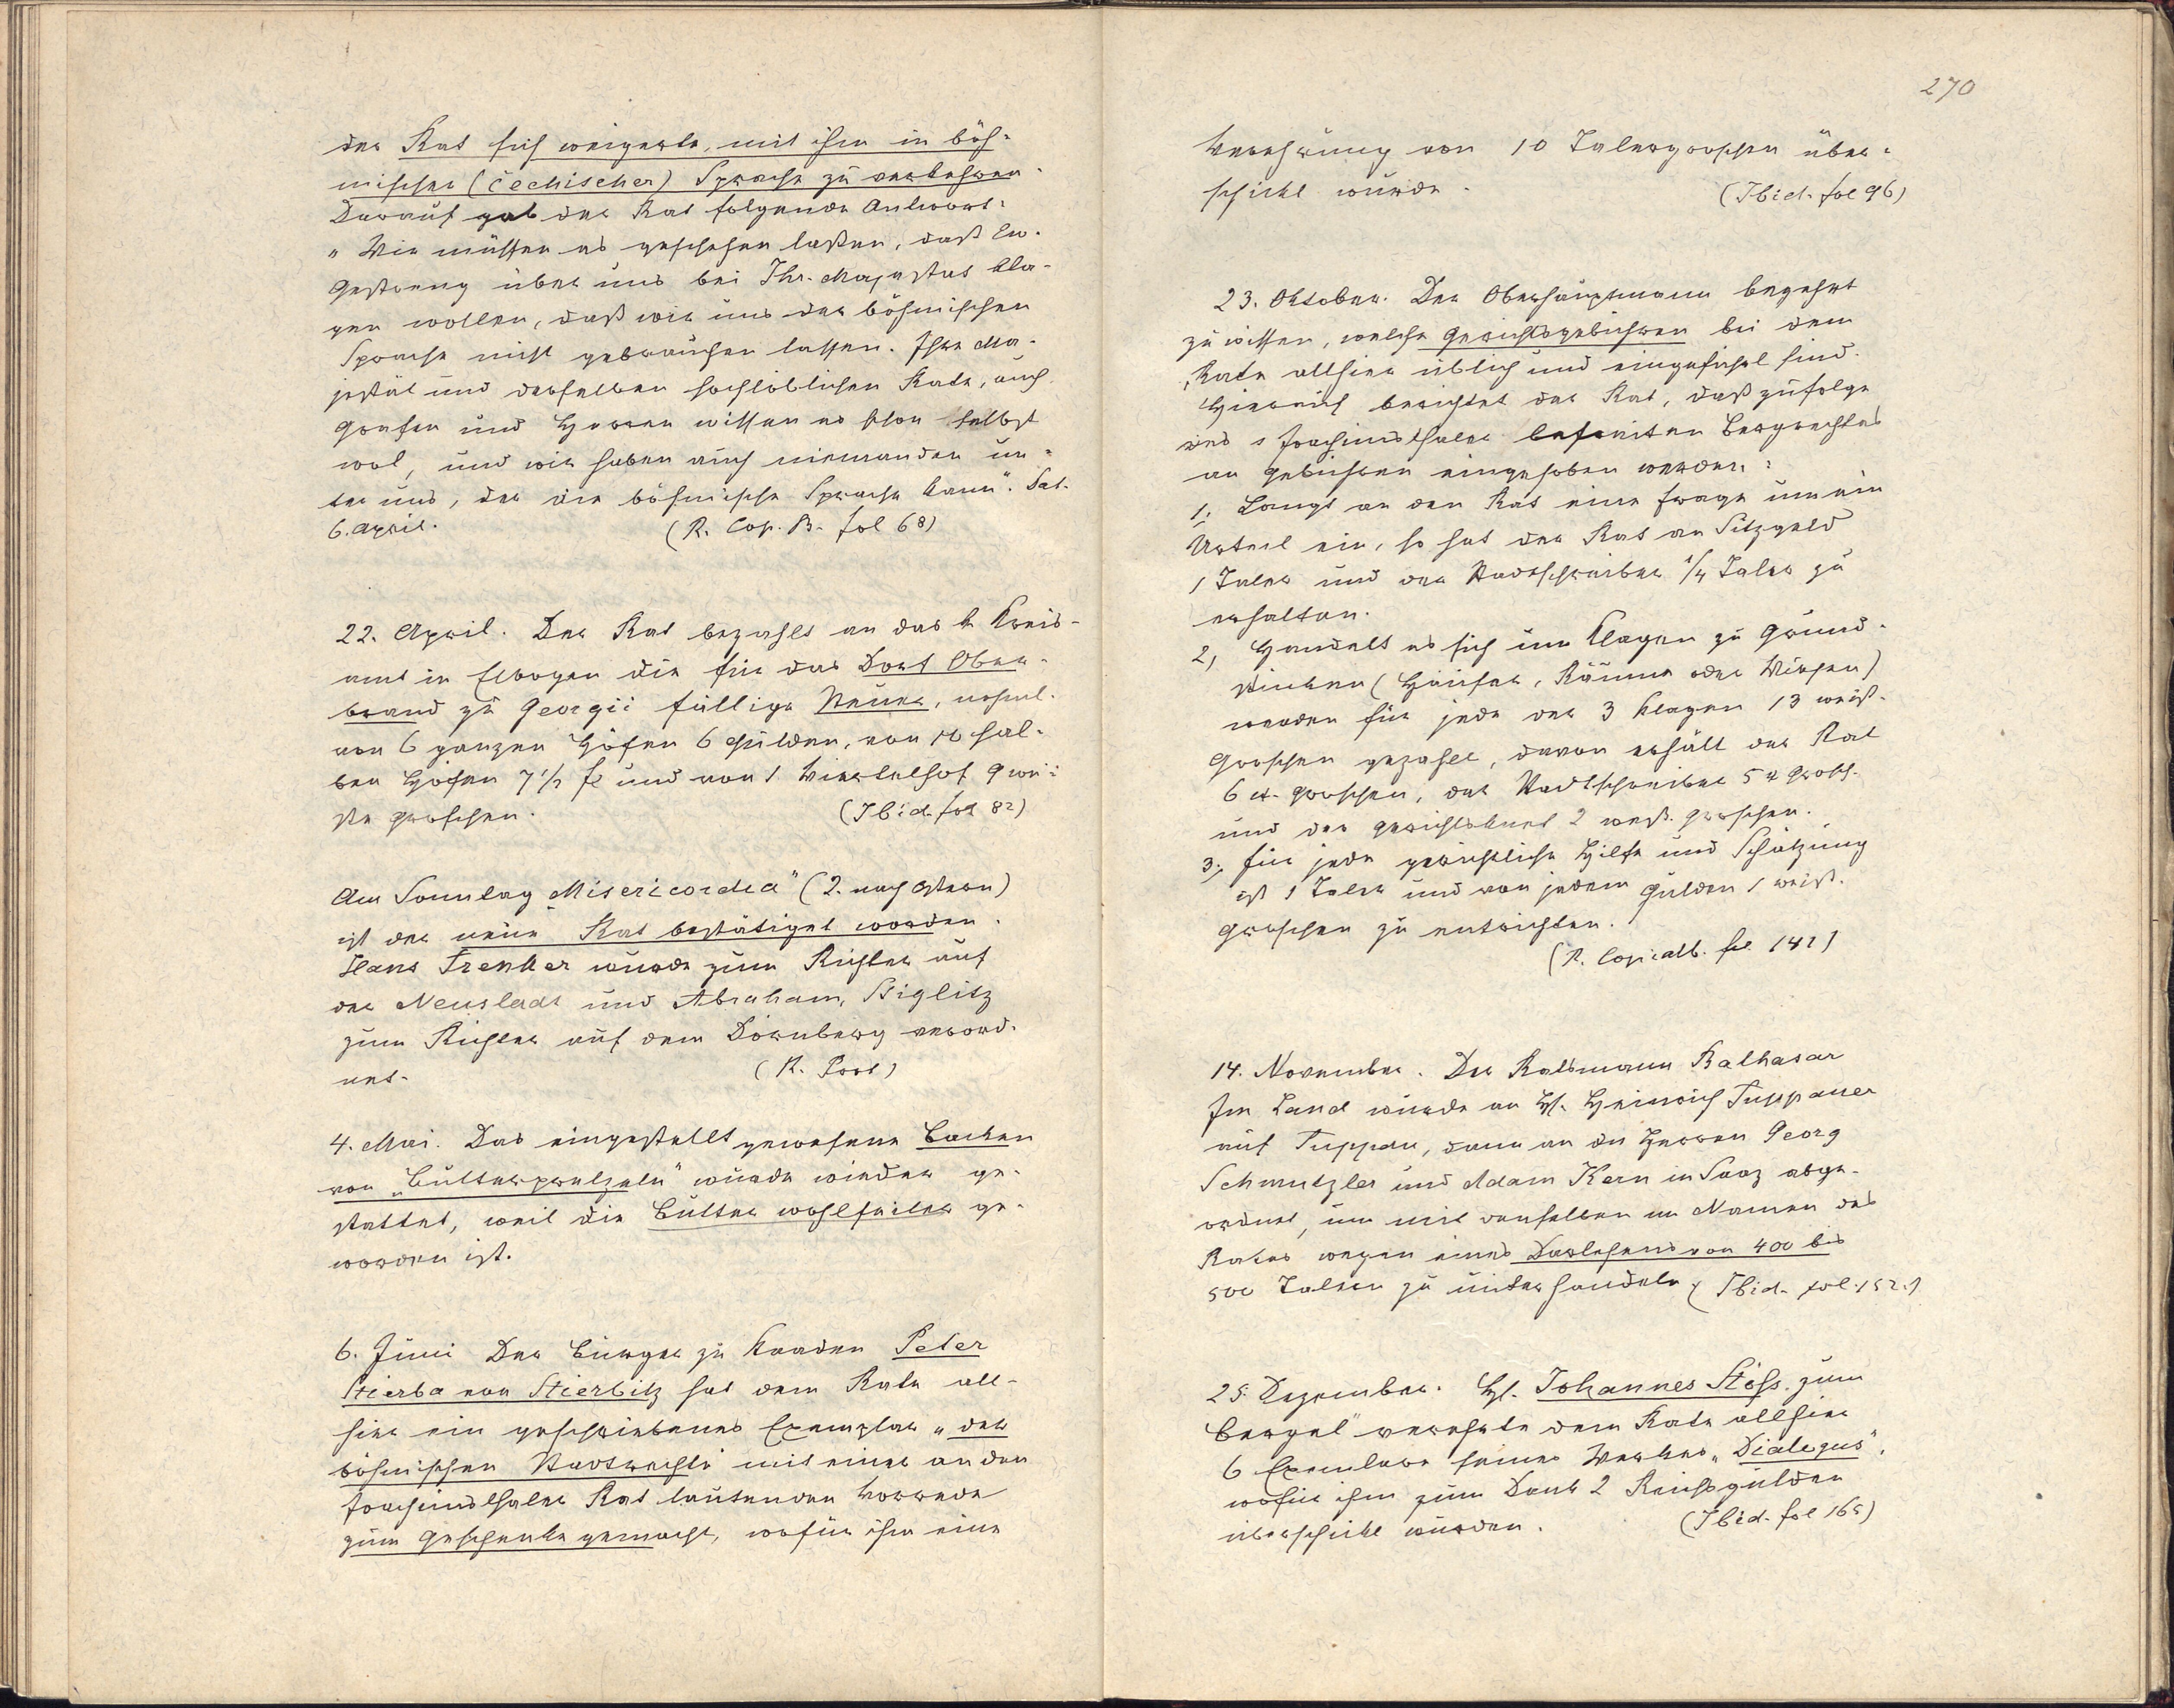 der Rat sich weigerte, mit ihm in böh-
mischer (čechischer) Sprache zu verkehren.
Darauf gab der Rat folgende Antwort:
"Wir müssen es geschehen laßen, daß Ew.
Gestreng über uns bei Ihr. Majestät kla-
gen wollen, daß wir uns der böhmischen
Sprache nicht gebrauchen lassen. Ihre Ma-
jestät und derselben hochlöblichen Räte, auch
Grafen und Herren wissen es schon selbst
wol, und wir haben auch niemanden un-
ter uns, der die böhmische Sprache kann". Dat.
6. April. (R. Cop. B. fol 68)
22. April. Der Rat bezahlt an das k Kreis-
amt in Elbogen die für das Dorf Ober-
brand zu Georgii fällige Steuer, nehml.
von 6 ganzen Höfen 6 Gulden, von 10 hal-
ben Höfen 7 1/2 fl und von 1 Viertelhof 9 wei-
ße Groschen. (Ibid. fol 82)
Am Sonntag „Misericordia" (2. nach Ostern)
ist der neue Rat bestätiget worden.
Hans Trenker wurde zum Richter auf
der Neustadt und Abraham Stiglitz
zum Richter auf dem Dörnberg verord-
net. (R. Prot)
4. Mai. Das eingestellt gewesene Backen
von „Butterpretzeln" wurde wieder ge-
stattet, weil die Butter wohlfeiler ge-
worden ist.
6. Juni Der Bürger zu Kaaden Peter
Stierba von Stierbitz hat dem Rate all-
hier ein geschriebenes Exemplar „der
böhmischen Stadtrechte mit einer an den
Joachimsthaler Rat lautenden Vorrede
zum Geschenke gemacht, wofür ihm eine
270
Verehrung von 10 Talergroschen über-
schickt wurde. (Ibid. fol 96)
23. Oktober. Der Oberhauptmann begehrt
zu wissen, welche Gerichtsgebühren bei dem
Rate allhier üblich und eingeführt sind.
Hierauf berichtet der Rat, daß zufolge
des Joachimsthaler befreiten Bergrechtes
an Gebühren eingehoben werden:
1. Langt an den Rat eine Frage um ein
Urteil ein, so hat der Rat an Sitzgeld
1 Taler und der Stadtschreiber 1/4 Taler zu
erhalten.
2, Handelt es sich um Klagen zu Grund-
stücken (Häuser, Räume oder Wiesen)
werden für jede der 3 Klagen 13 weiß.
Groschen gezahlt, davon erhält der Rat
6 w. Groschen, der Stadtschreiber 5 w Grosch.
und der Gerichtsknecht 2 weiß. Groschen.
3, für jede gerichtliche Hilfe und Schätzung
ist 1 Taler und von jedem Gulden 1 weiß.
Groschen zu entrichten.
(R. Copialb. fol 142)
14. November. Der Ratsmann Balthasar
Im Land wurde an H. Heinrich Tuppauer
auf Tuppau, dann an die Herren Georg
Schmutzler und Adam Kern in Saaz abge-
ordnet, um mit denselben im Namen des
Rates wegen eines Darlehens von 400 bis
500 Talern zu unterhandeln (Ibid. fol. 152.)
25. Dezember. H. Johannes Stöss. zum
Bergel" verehrte dem Rate allhier
6 Exemlare seines Werkes „Dialogus",
wofür ihm zum Dank 2 Reichsgulden
überschickt wurden. (Ibid. fol 165)